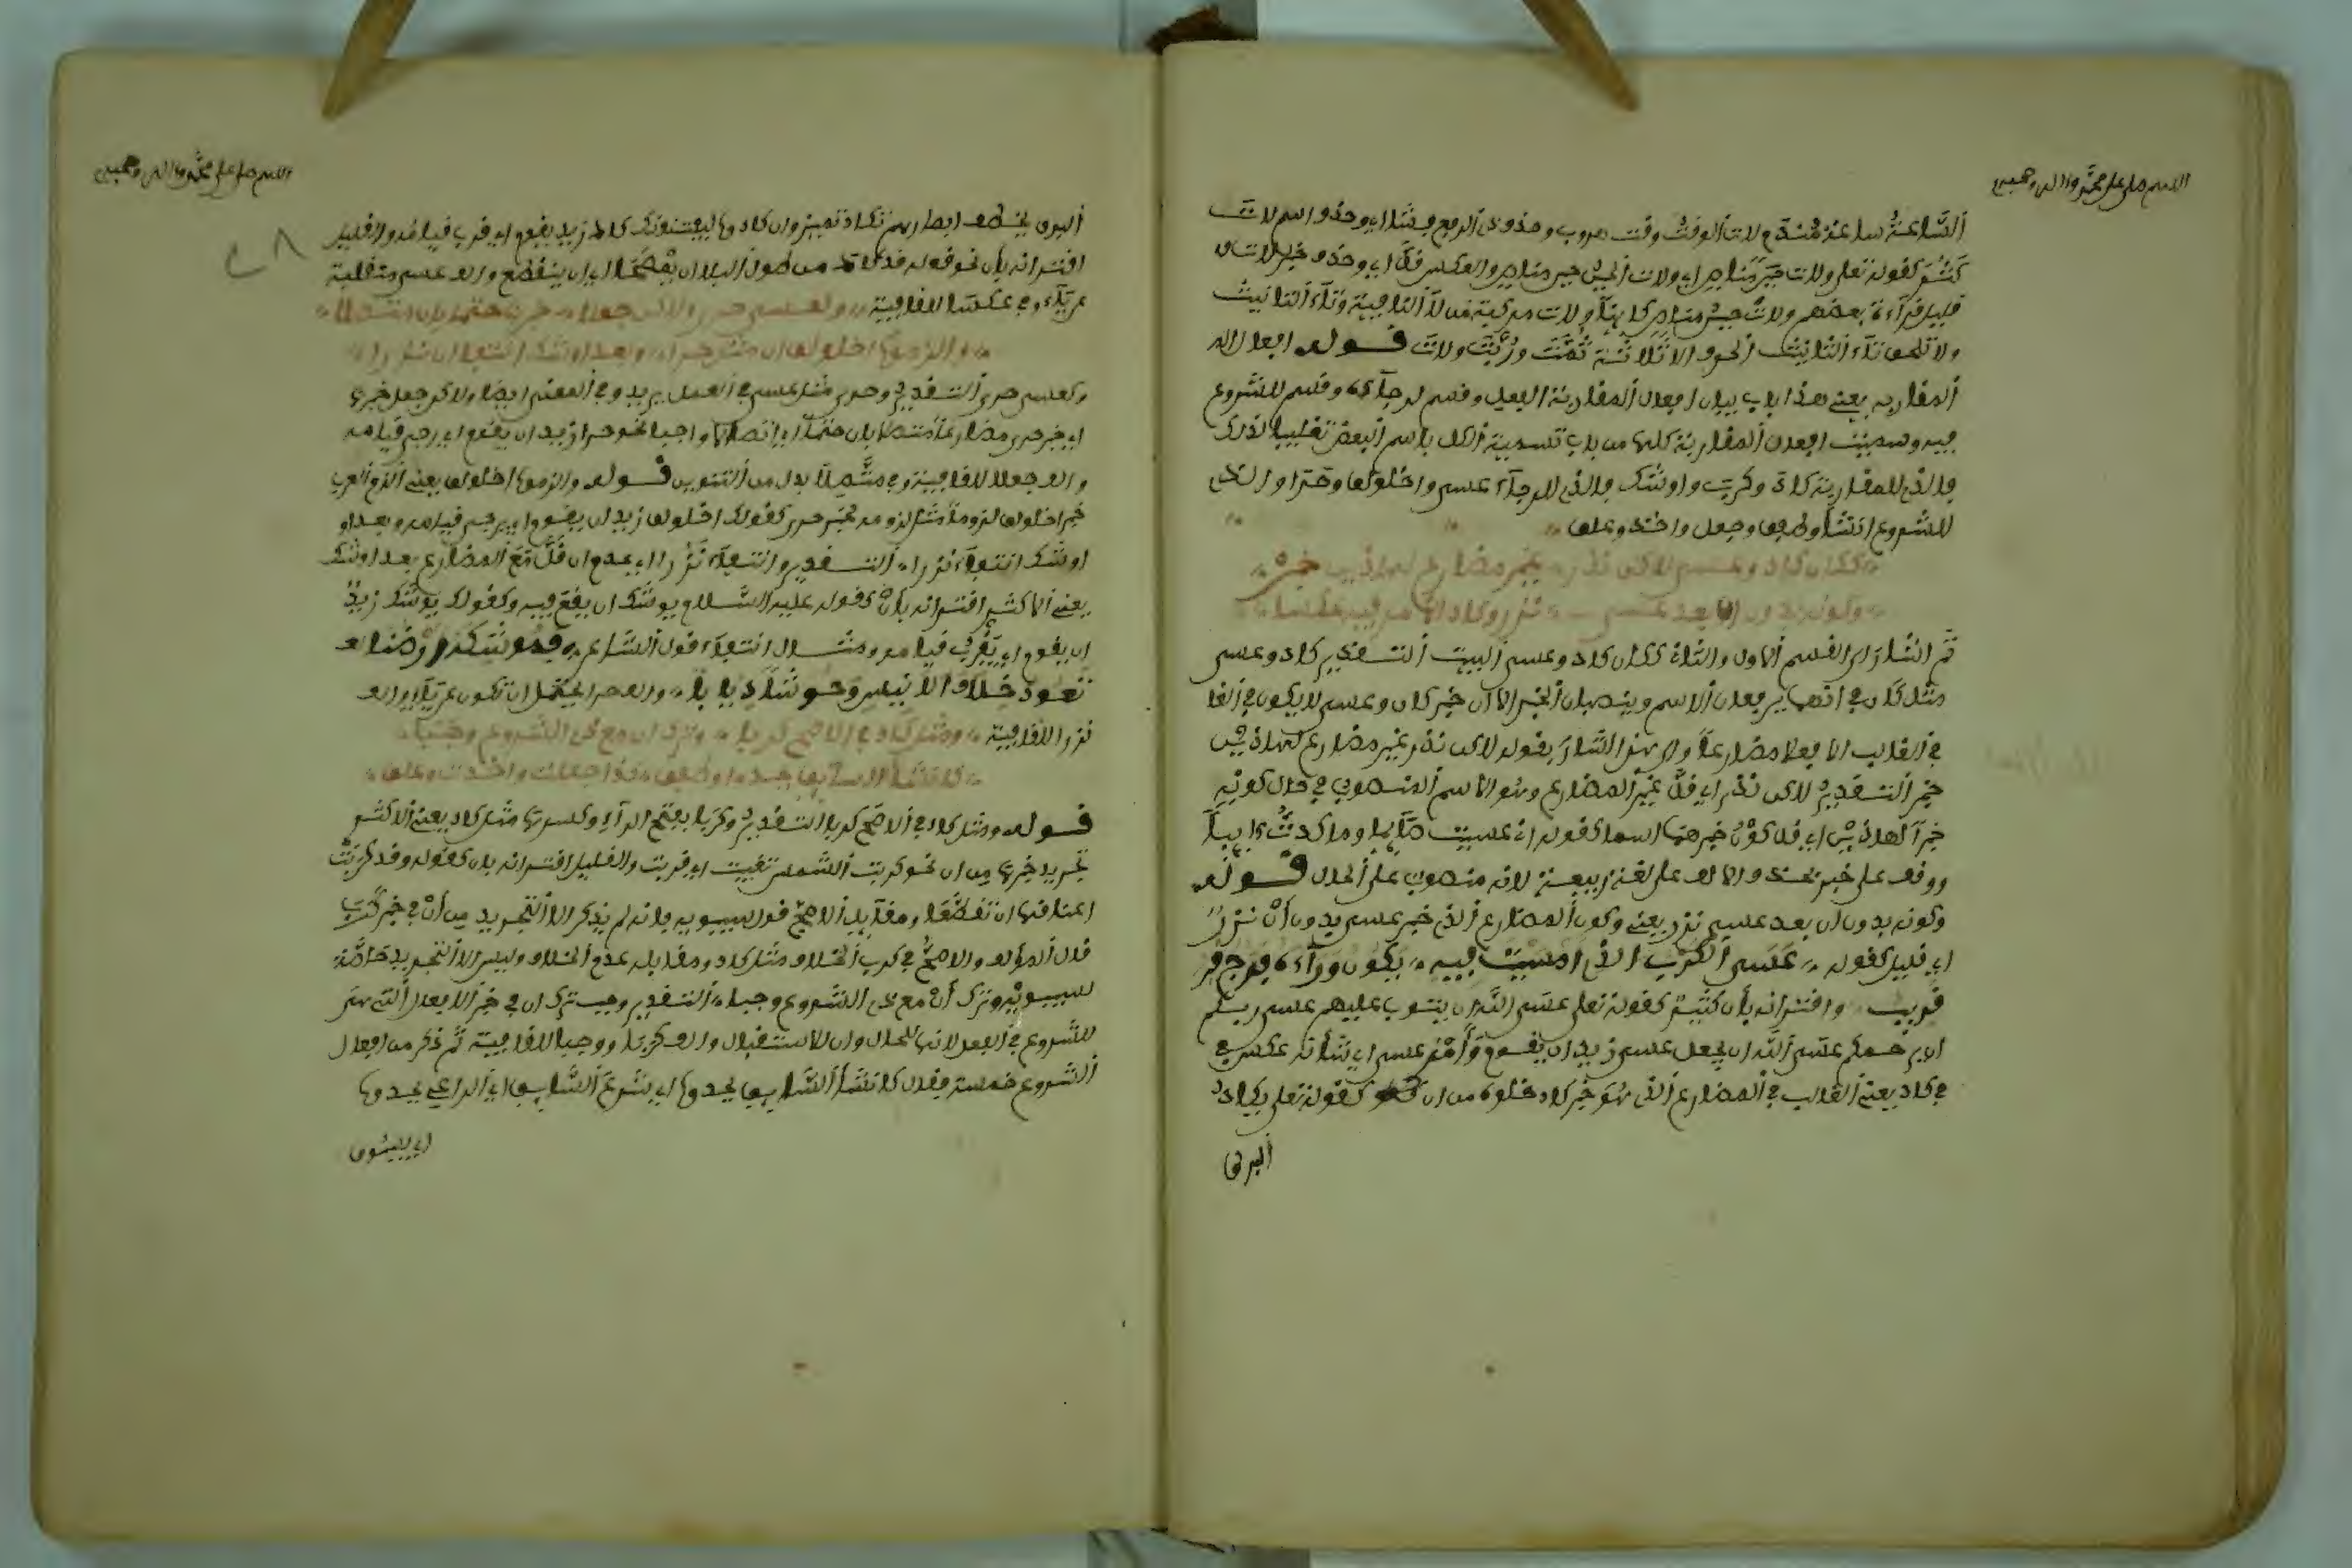 اللهم صل على محمد وءاله وصحبه
ألسَّاعة ساعة مندم لات ألوقت وقت هروب وحذف ذى ألرفع فشا اي وحذف اسم لات
كثر كقوله تعلى ولات حين مناص اي ولات ألحين حين مناص والعكس قلّ اي وحذف خبر لات
قليل قرآءة بعضهم ولات حين مناص ولات مركبة من لا ألنافية وتآء ألتانيث
ولا تلحق تآء ألتانيث ألحرف الا ثلاثة ثُمَّتَ ورُبَّتَ ولاتَ قوله افعال
ألمقاربه يعني هذا باب بيان افعال ألمقاربة الفعل وقسم لرجآئه وقسم للشروع
فيه وسميت افعال ألمقاربة كلها من باب تسمية ألكل باسم ألبعض تغليبا
فالذى للمقاربة كاد وكرب واوشك والذى للرجآء عسى واخلولق وحرا والذى
للشروع انشأ وطفق وجعل واخذ وعلق
ككان كاد وعسى لاكن ندر غير مضارع لهاذين خبر
وكونه بدون ان بعد عسى نزر وكاد الامر فيه عكسا
ثم اشار الى القسم الاول والثانى ككان كاد وعسى ألبيت ألتقدير كاد وعسى
مثل كان في انهما يرفعان ألاسم وينصبان ألخبر الا ان خبر كاد وعسى لا يكون في
في ألغالب الا فعلا مضارعا والى هذا اشار بقوله لاكن ندر غير مضارع لهاذين
خبر ألتقدير لاكن ندر اي قلّ غير ألمضارع وهو الاسم ألمنصوب في حال كونه
خبرا لهاذين اي قل كون خبرهما اسما كقوله انى عسيت صآئما وما كدت ءايبا
ووقف على خبر بحذف الالف على لغة ربيعة لانه منصوب على ألحال قوله
وكونه بدون ان بعد عسى نزر يعني وكون ألمضارع ألذى خبر عسى بدون أن نزر
اي قليل كقوله عَسَى ألكَرْبُ الذى امسيت فيه يكون ورآءه فرج
قريب واقترانه بأن كثير كقوله تعلى عسى اللّه ان يتوب عليهم عسى ربكم
ان يرحمكم عسى ألله ان يجعل عسى زيد ان يقوم وأمر عسى اي شأنه عكس
في كاد يعني ألغالب في ألمضارع ألذى هو خبر كاد خلوه من ان كقوله تعلى يكاد
ألبرق
اللهم صل على محمد وءاله وصحبه
٤٨
ألبرق يخطف ابصارهم تكاد تميز وان كادوا ليفتنونك كاد زيد يقوم اي قرب قيامه والقليل
اقترانه بأن نحو قوله قد كاد من طول ألبلا ان يمصحا اي ان ينقطع والف عسى منقلبة
عن يآء وفي عكسا للقافية وكعسى حرى ولاكن جعلا خبرها حتما بان متصلا
والزموا اخلولق ان مثل حرا وبعد اوشك انتفا ان نزرا
وكعسى حرى ألتقدير وحرى مثل عسى في ألعمل يريد وفي ألمعنى ايضا ولاكن جعل خبرها
اي خبر حرى مضارعا متصلا بان حتما اي اتصالا واجبا نحو حرا زيد ان يقوم اي رجى قيامه
والف جعلا للقافية وفي متصلاً بدل من ألتنوين قوله والزموا اخلولق يعني ألزم ألعرب
خبر اخلولق لزوما مثل لزومه لخبر حرى كقولك اخلولق زيد ان يقوم اي يرجى قيامه وبعد
اوشك انتفا ان نزرا ألتقدير وانتفآء نزرا اي عدم ان قلّ مع ألمضارع بعد اوشك
يعني ألاكثر اقترانه بأن كقوله عليه ألسلام يوشك ان يقع فيه وكقولك يوشك زيد
ان يقوم اي يقرب قيامه ومثال انتفآء قول ألشاعر فموشكة ارضنا
تعود خلاف الانيس وحوشا يبابا والف حرا يحتمل ان تكون عن يآء والف
نزرا للقافية ومثل كاد في الاصح كربا وترك ان مع ذى الشروع وجبا
كانشأ السائق يحدو وطفق كذا جعلت واخذت وعلق
قوله ومثل كاد في ألاصح كربا ألتقدير وكربا بفتح الرآء وكسرها مثل كاد يعني ألاكثر
تجريد خبرها من ان نحو كربت ألشمس تغيب اي قربت والقليل اقترانه بان كقوله وقد كربت
اعناقها ان تقطعا ومقابل ألاصح قول سيبويه فانه لم يذكر الا ألتجريد من أن في خبر كرب
قال ألمؤلف والاصح في كرب ألخلاف مثل كاد ومقابله عدم ألخلاف وليس الا ألتجريد خاصّة
لسيبويه وترك أن مع ذى الشروع وجبا ألتقدير وجب ترك ان في خبر ألافعال ألتي هي
للشروع في ألفعل لانها للحال وان للاستقبال والف كربا ووجبا للقافية ثم ذكر من افعال
ألشروع خمسة فقال كانشأ ألسائق يحدو اي شرع ألسائق اي ألراعي يحدو
اي يسوق